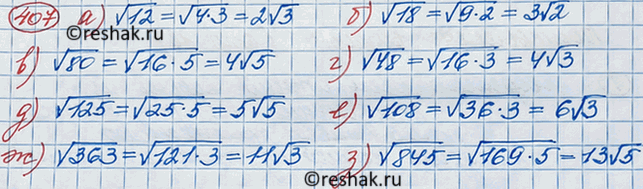 407 а) √12 = √4·3 = 2√3 б) √18 = √9·2 = 3√2
©reshak.ru
в) √80 = √16·5 = 4√5 г) √48 = √16·3 = 4√3
д) √125 = √25·5 = 5√5 е) √108 = √36·3 = 6√3
©reshak.ru
ж) √363 = √121·3 = 11√3 з) √845 = √169·5 = 13√5